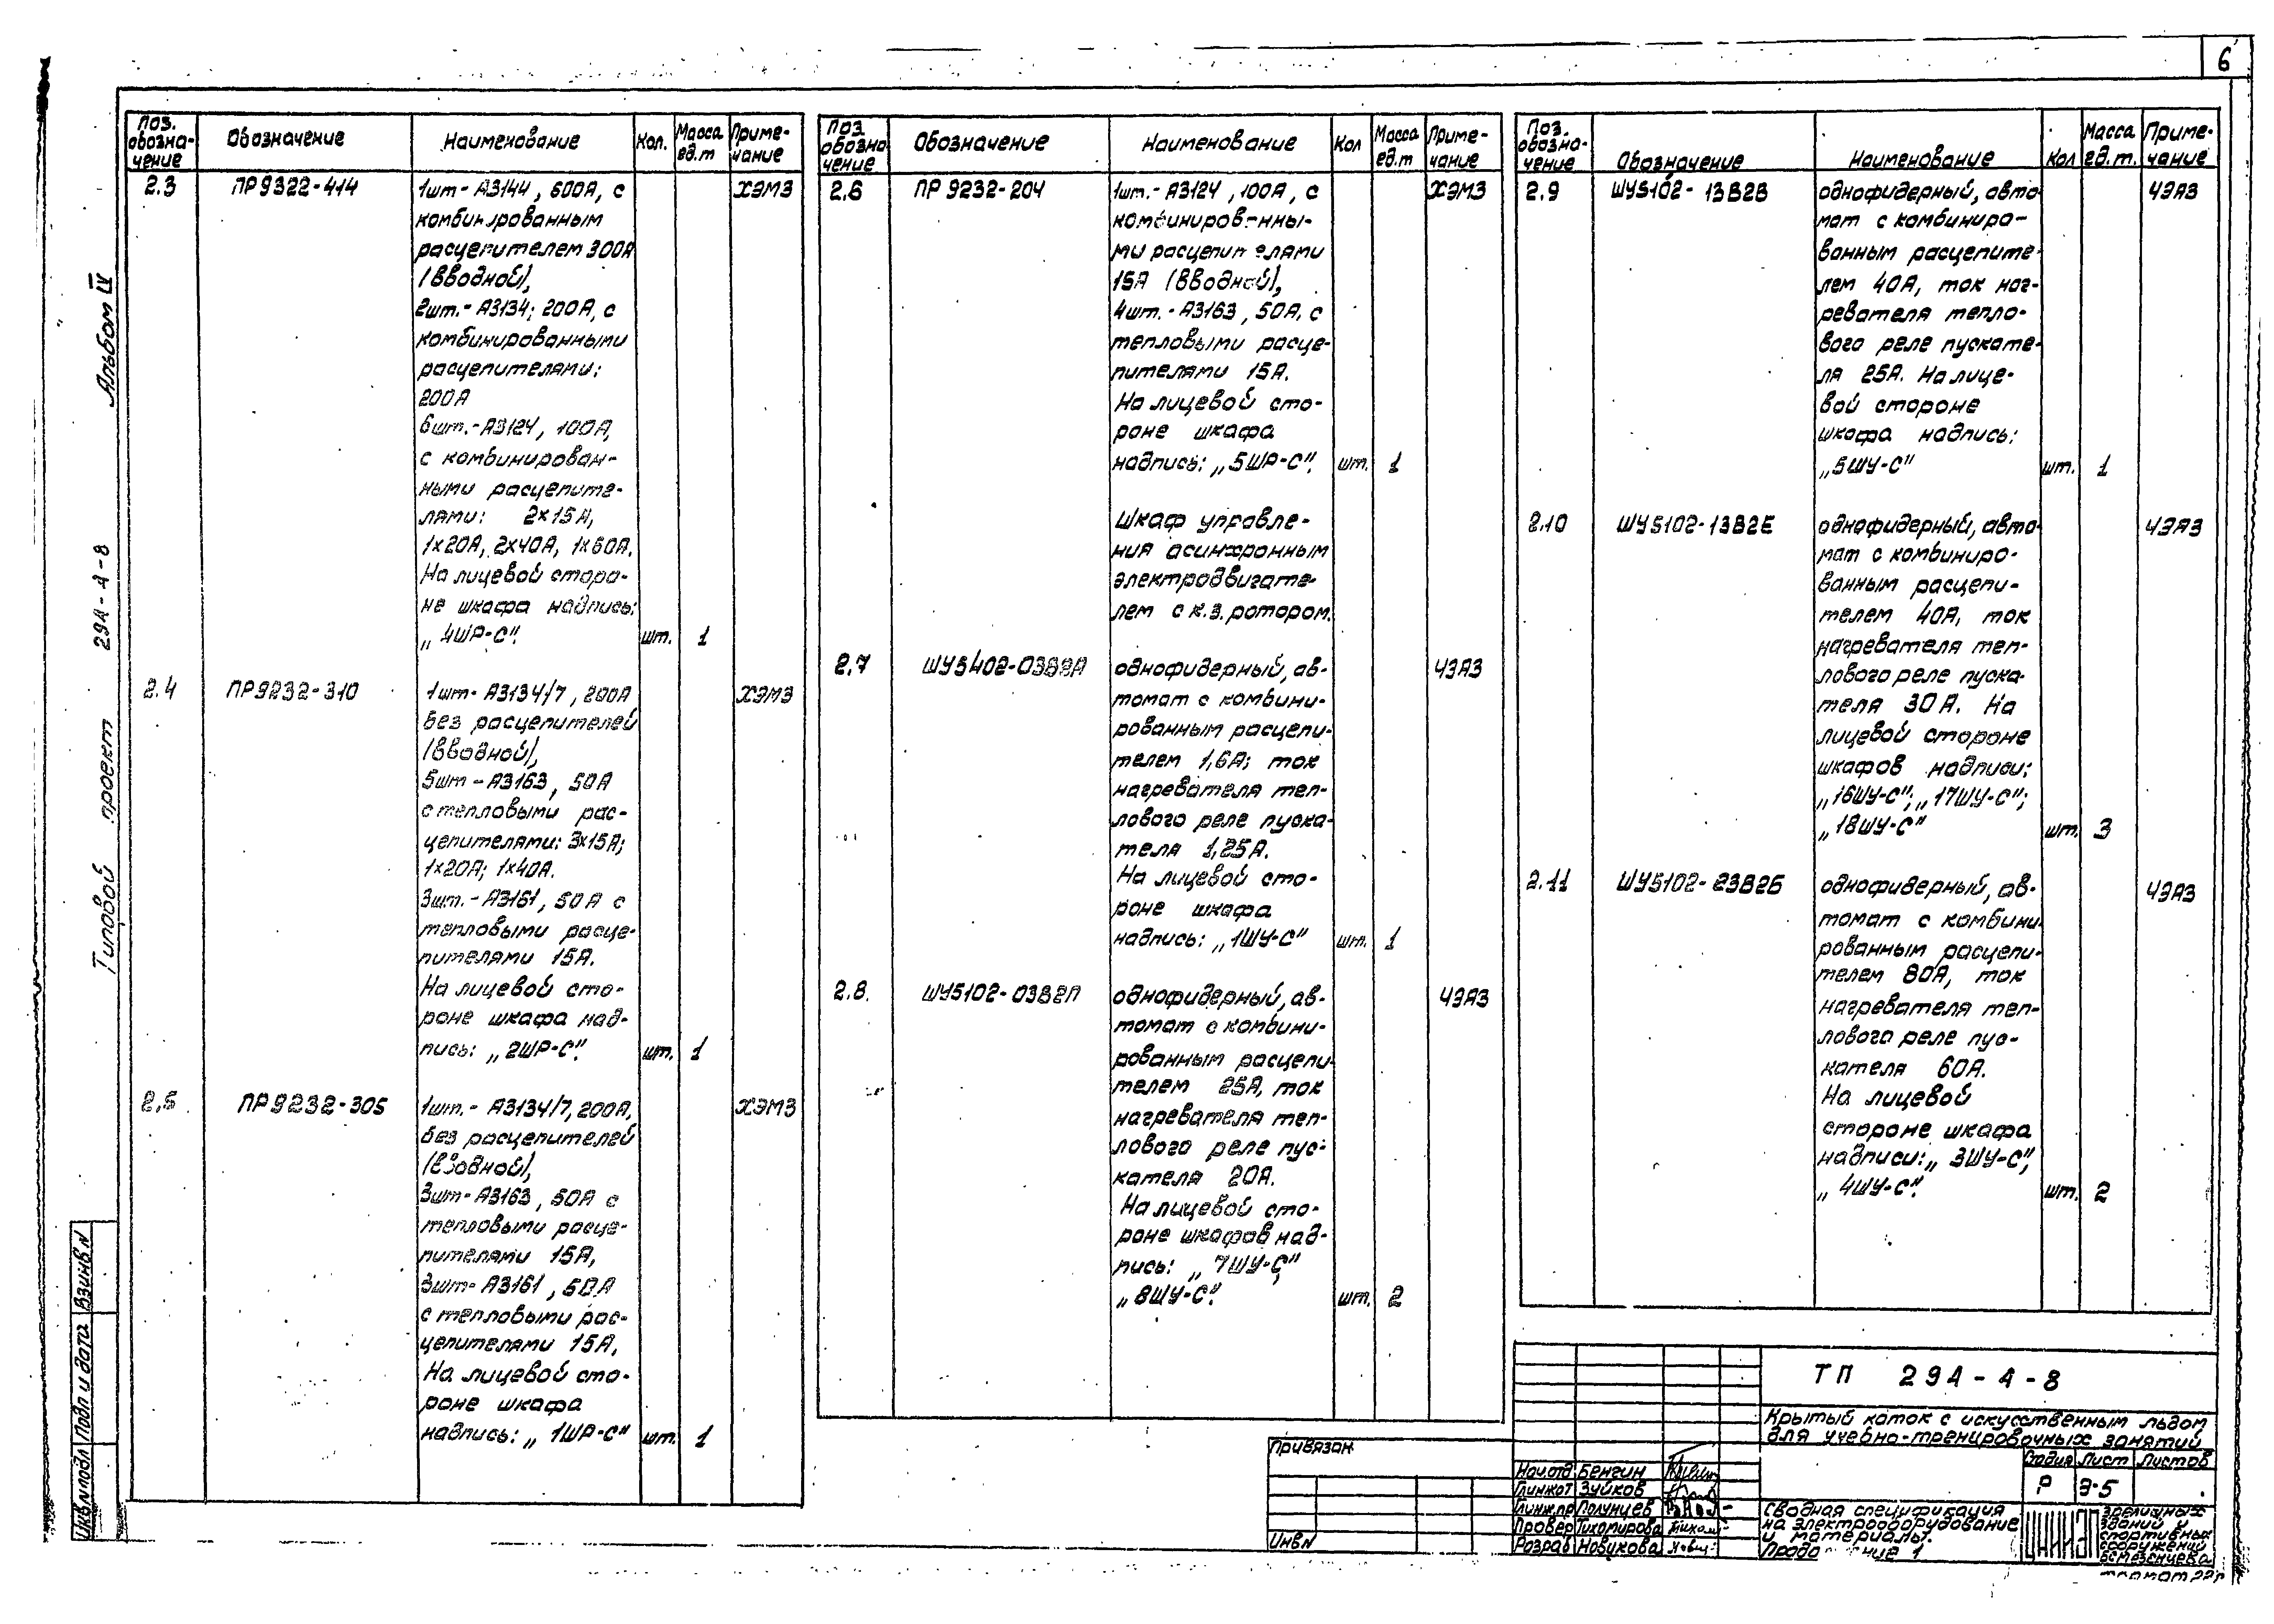 6
Альбом IV
Типовой проект 294-4-8
Взинв N
Подп и дата
Инв.N подл
Поз. обозна-чение Обозначение Наименование Кол. Масса ед.т Приме-чание
2.3 ПР9322-414 1шт-А3144, 600А, с ХЭМЗ
комбинированным
расцепителем 300А
(вводной),
2шт.-А3134; 200А, с
комбинированными
расцепителями:
200А
6шт.-А3124, 100А,
с комбинирован-
ными расцепите-
лями: 2×15А,
1×20А, 2×40А, 1×60А.
На лицевой сторо-
не шкафа надпись:
„4ШР-С". шт. 1
2.4 ПР9232-310 1шт-А3134/7, 200А ХЭМЗ
без расцепителей
(вводной),
5шт-А3163, 50А
с тепловыми рас-
цепителями: 3×15А;
1×20А; 1×40А.
3шт.-А3161, 50А с
тепловыми расце-
пителями 15А.
На лицевой сто-
роне шкафа над-
пись: „2ШР-С". шт. 1
2.5 ПР9232-305 1шт.-А3134/7, 200А, ХЭМЗ
без расцепителей
(вводной),
3шт-А3163, 50А с
тепловыми расце-
пителями 15А,
3шт-А3161, 50А
с тепловыми рас-
цепителями 15А,
На лицевой сто-
роне шкафа
надпись: „1ШР-С" шт. 1
Поз. обозна чение Обозначение Наименование Кол Масса ед.т Приме-чание
2.6 ПР 9232-204 1шт.-А3124, 100А, с ХЭМЗ
комбинированны-
ми расцепителями
15А (вводной),
4шт.-А3163, 50А, с
тепловыми расце-
пителями 15А.
На лицевой сто-
роне шкафа
надпись: „5ШР-С". шт. 1
Шкаф управле-
ния асинхронным
электродвигате-
лем с к.з. ротором.
2.7 ШУ5402-03В2А однофидерный, ав- ЧЭАЗ
томат с комбини-
рованным расцепи-
телем 1,6А; ток
нагревателя теп-
лового реле пуска-
теля 1,25А.
На лицевой сто-
роне шкафа
надпись: „1ШУ-С" шт. 1
2.8. ШУ5102-03В2П однофидерный, ав- ЧЭАЗ
томат с комбини-
рованным расцепи
телем 25А, ток
нагревателя теп-
лового реле пус-
кателя 20А.
На лицевой сто-
роне шкафов над-
пись: „7ШУ-С"
„8ШУ-С". шт. 2
Поз. обозна-чение Обозначение Наименование Кол Масса ед.т. Приме-чание
2.9 ШУ5102-13В2В однофидерный, авто- ЧЭАЗ
мат с комбиниро-
ванным расцепите-
лем 40А, ток наг-
ревателя тепло-
вого реле пускате-
ля 25А. На лице-
вой стороне
шкафа надпись:
„5ШУ-С" шт. 1
2.10 ШУ5102-13В2Е однофидерный, авто- ЧЭАЗ
мат с комбиниро-
ванным расцепи-
телем 40А, ток
нагревателя теп-
лового реле пуска-
теля 30А. На
лицевой стороне
шкафов надписи:
„16ШУ-С"; „17ШУ-С";
„18ШУ-С" шт. 3
2.11 ШУ5102-23В2Б однофидерный, ав- ЧЭАЗ
томат с комбини
рованным расцепи-
телем 80А, ток
нагревателя теп-
лового реле пус-
кателя 60А.
На лицевой
стороне шкафа
надписи: „3ШУ-С",
„4ШУ-С". шт. 2
ТП 294-4-8
Крытый каток с искусственным льдом
для учебно-тренировочных занятий
Стадия Лист Листов
Р Э-5
Сводная спецификация
на электрооборудование
и материалы.
ЦНИИЭП
зрелищных
зданий
спортивных
сооружений
Привязан
Инв N
Нач.отд Бенгин
Гл.инж.пр Полунцев
Провер Тихомирова
Разраб Новикова
Формат 22г